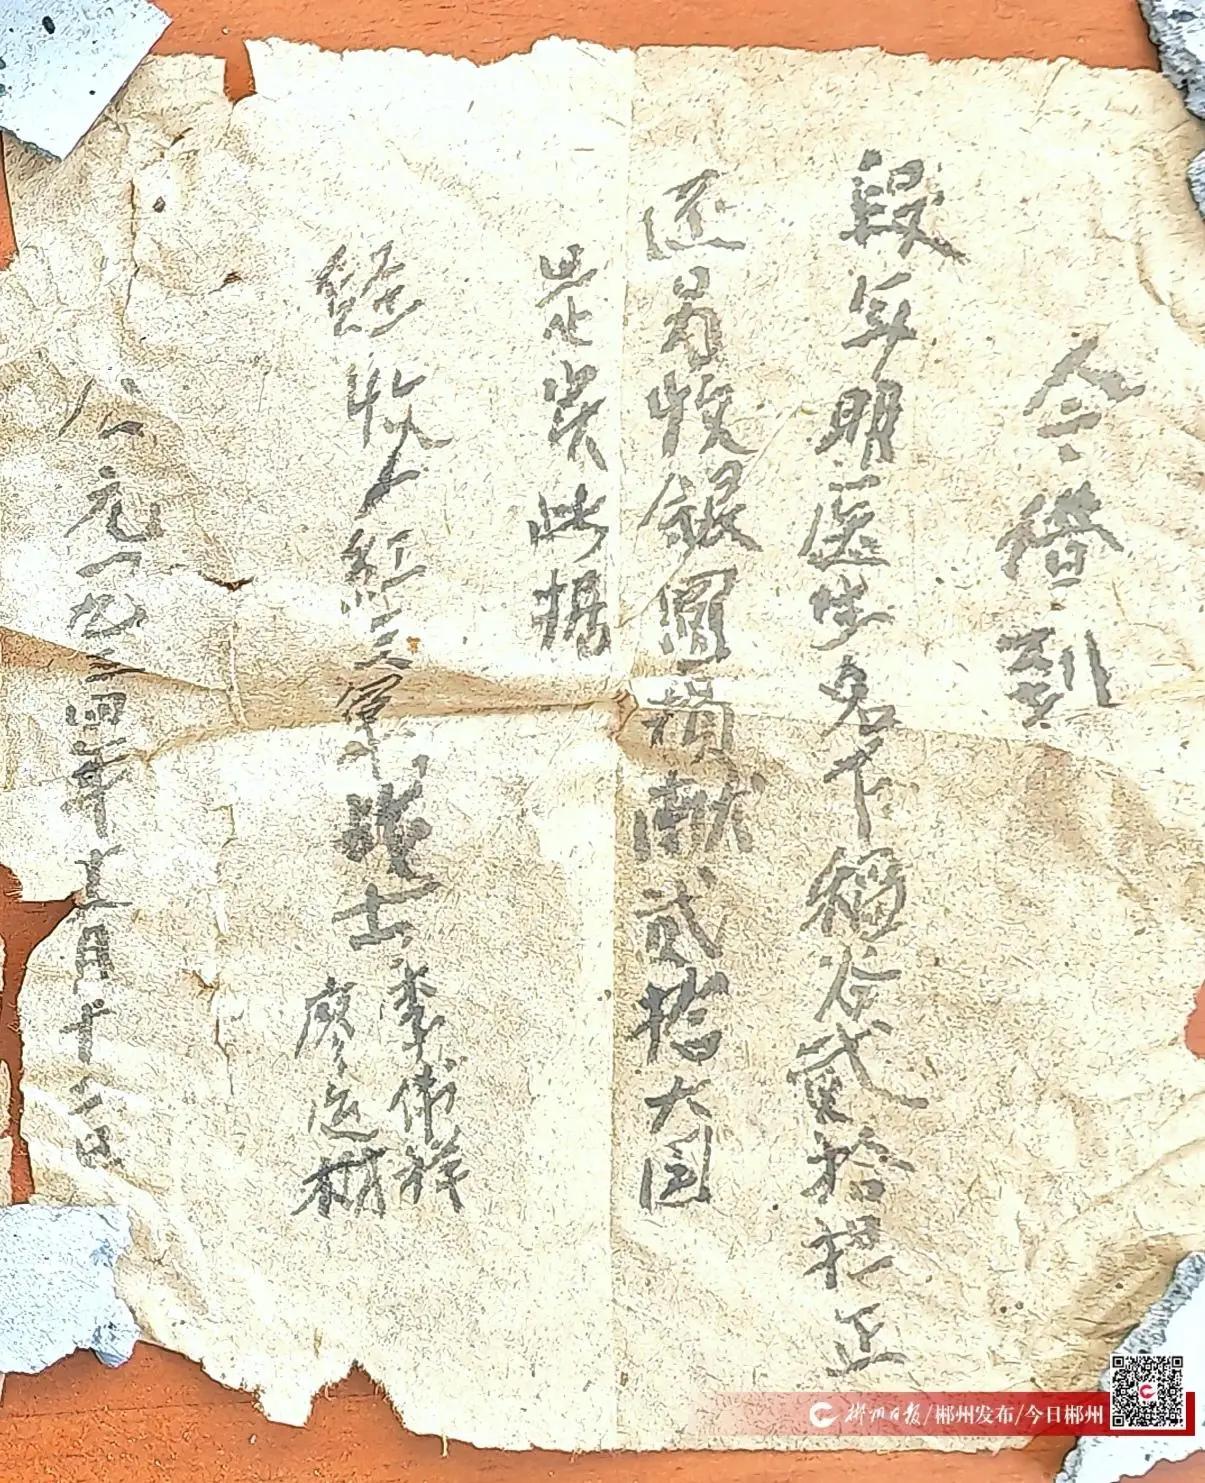 今借到
段年明医生名下稻谷贰拾担正
还另收银圆捐献贰拾大圆
是实此据
经收人红三军护士李伟祥
廖运材
公元一九三四年十一月十二日
郴州日报/郴州发布/今日郴州